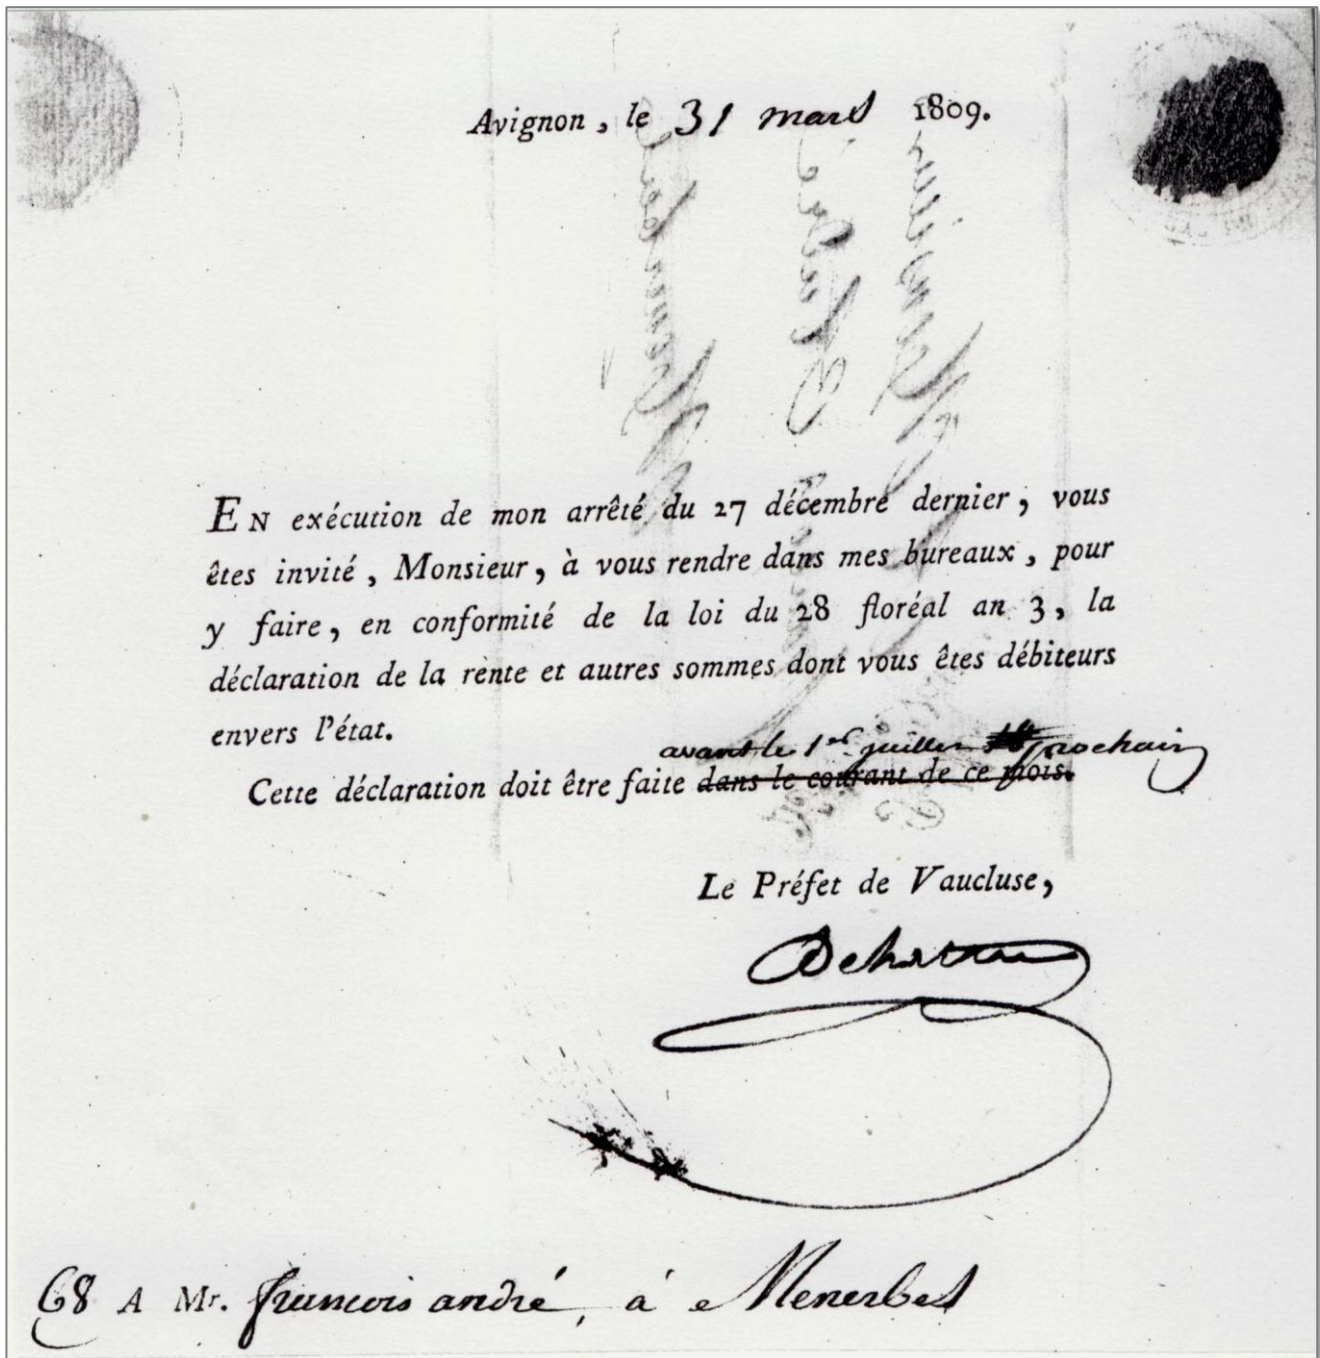 Avignon, le 31 mars 1809.
EN exécution de mon arrêté du 27 décembre dernier, vous
êtes invité, Monsieur, à vous rendre dans mes bureaux, pour
y faire, en conformité de la loi du 28 floréal an 3, la
déclaration de la rente et autres sommes dont vous êtes débiteurs
envers l'état.
avant le 1er juillet prochain
Cette déclaration doit être faite dans le courant de ce mois.
Le Préfet de Vaucluse,
68 A Mr. francois andré, à Menerbes